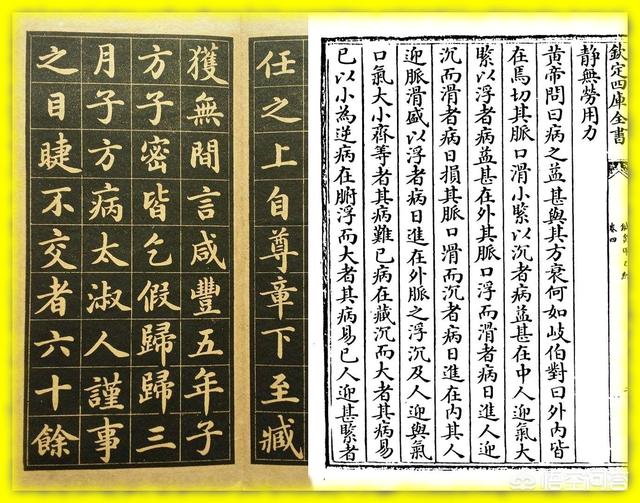 欽定四庫全書
卷四
靜無勞用力
黃帝問曰病之益甚與其方衰何如岐伯對曰外內皆
在焉切其脈口滑小緊以沉者病益甚在中人迎氣大
緊以浮者病益甚在外其脈口浮而滑者病日進人迎
沉而滑者病日損其脈口滑而沉者病日進在內其人
迎脈滑盛以浮者病日進在外脈之浮沉及人迎與氣
口氣大小齊等者其病難已病在藏沉而大者其病易
已以小為逆病在腑浮而大者其病易已人迎甚緊者
任之上自尊章下至臧
獲無間言咸豐五年子
方子密皆乞假歸歸三
月子方病太淑人謹事
之目睫不交者六十餘